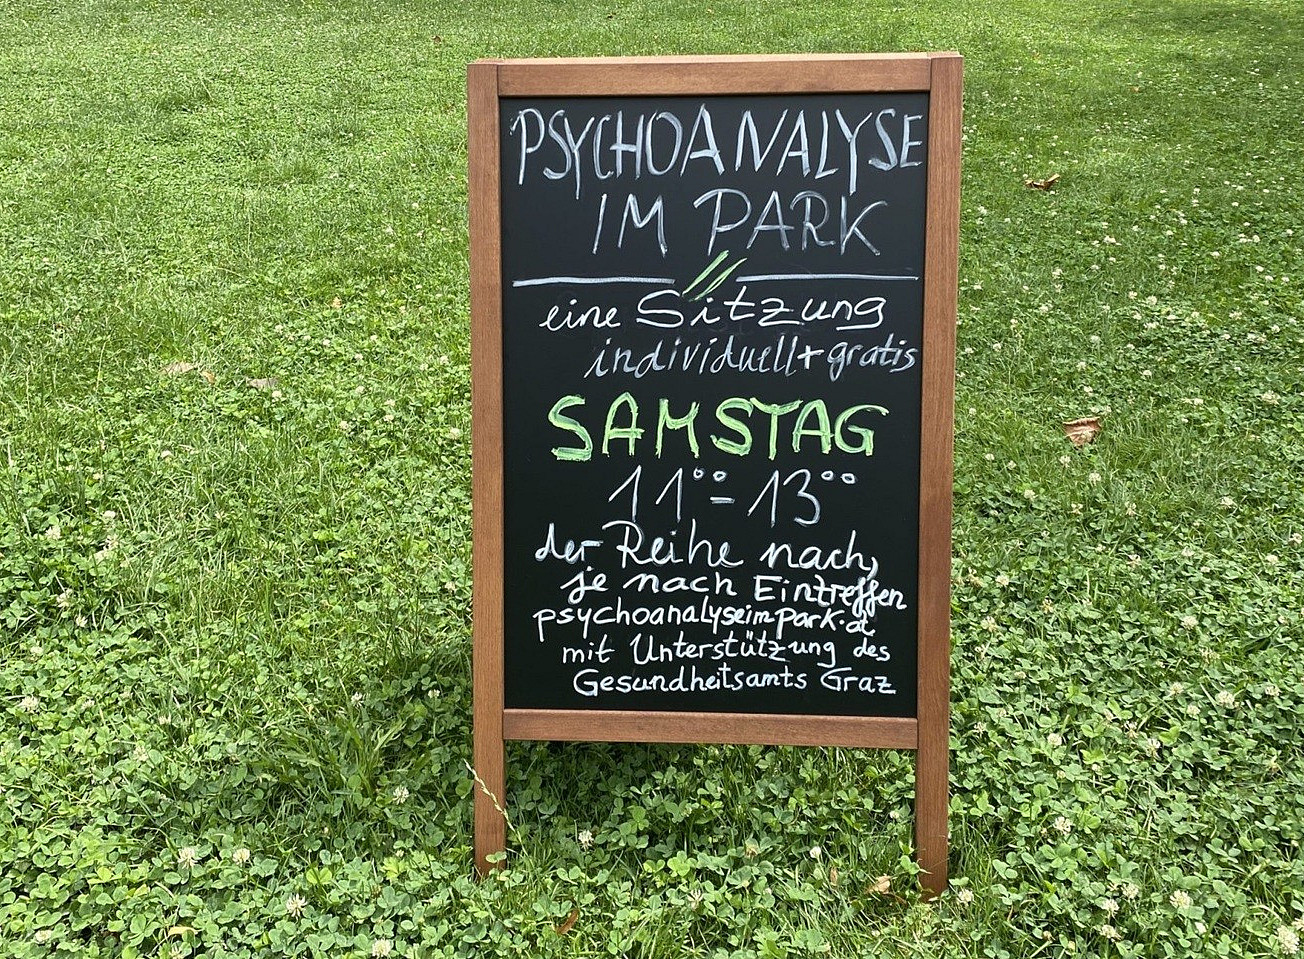 PSYCHOANALYSE
IM PARK
eine Sitzung
individuell + gratis
SAMSTAG
11°° - 13°°
der Reihe nach,
je nach Eintreffen
psychoanalyseimpark.at
mit Unterstützung des
Gesundheitsamts Graz